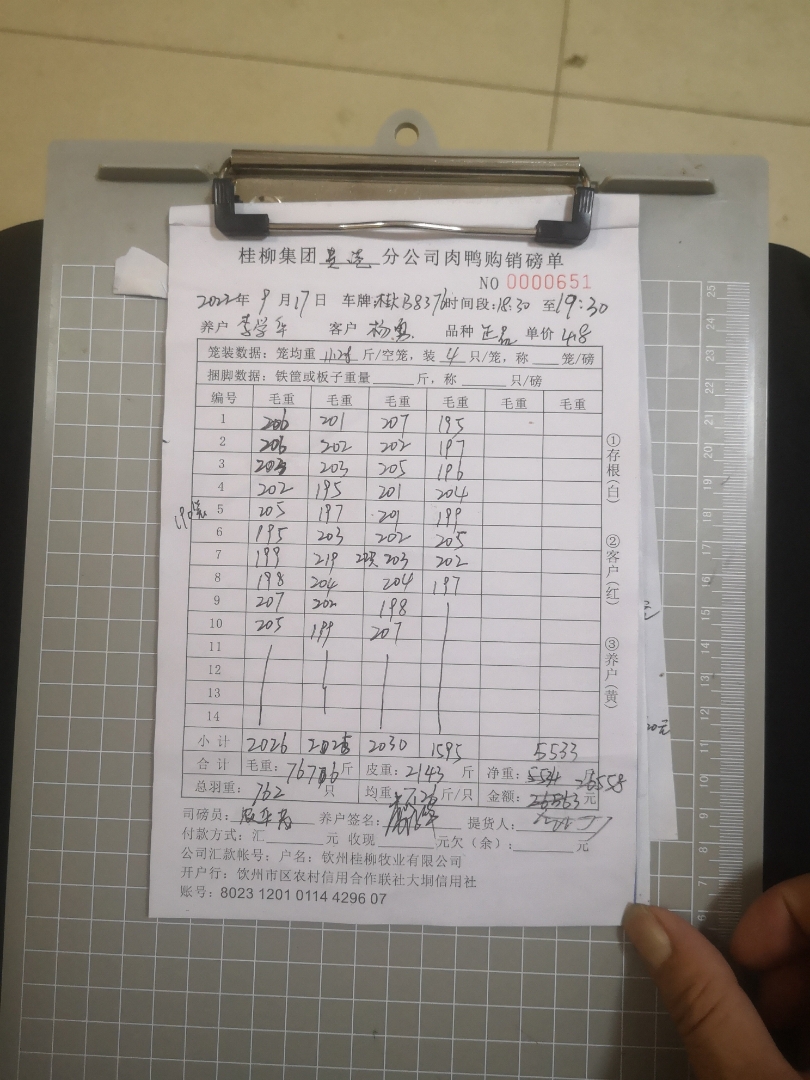 桂柳集团 分公司肉鸭购销磅单
NO 0000651
2022年 9月17日 车牌: B8376 时间段:18:30 至19:30
养户 李学军 客户 杨勇 品种 正品 单价 4.8
笼装数据: 笼均重 11.28 斤/空笼, 装 4 只/笼, 称 笼/磅
捆脚数据: 铁筐或板子重量 斤, 称 只/磅
编号 毛重 毛重 毛重 毛重 毛重 毛重
1 206 201 207 195
2 206 202 202 197
3 203 203 205 196
4 202 195 201 204
5 205 197 201 199
6 195 203 202 205
7 199 219 203 202
8 198 204 204 197
9 207 202 198
10 205 199 207
11
12
13
14
小计 2026 2025 2030 1595 5533
合计 毛重: 7676斤 皮重: 2143 斤 净重: 斤 26558
总羽重: 762 只 均重: 7.26 斤/只 金额: 元
司磅员: 养户签名: 提货人:
付款方式: 汇 元 收现 元欠(余): 元
公司汇款帐号: 户名: 钦州桂柳牧业有限公司
开户行: 钦州市区农村信用合作联社大垌信用社
账号: 8023 1201 0114 4296 07
①存根(白)
②客户(红)
③养户(黄)
元
25
23
22
21
20
19
18
17
16
15
14
13
12
11
10
9
8
7
6